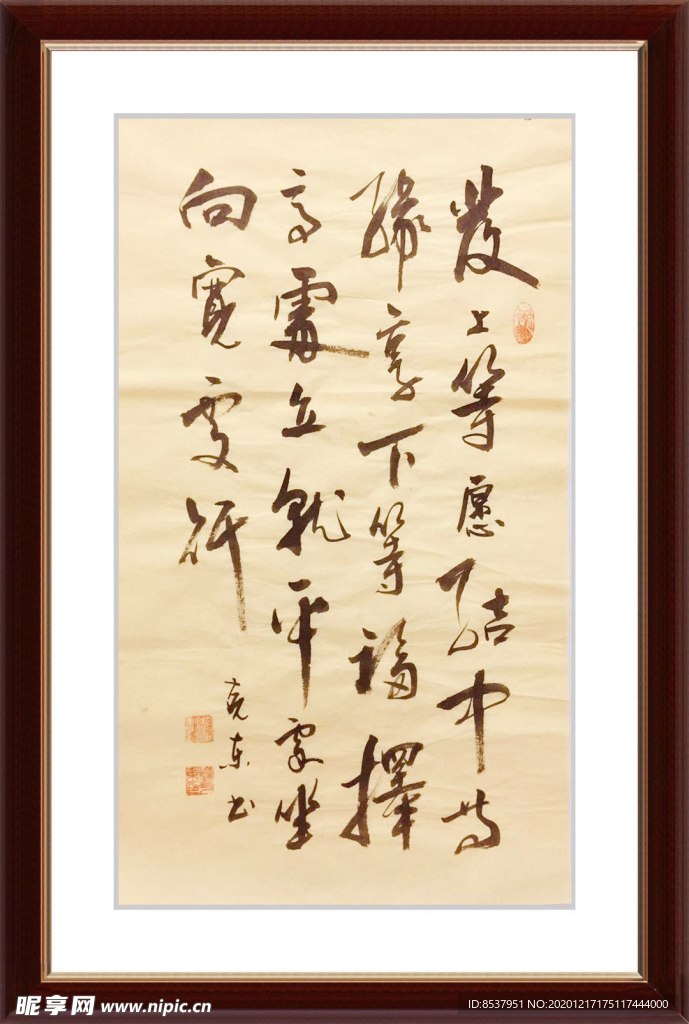 發上等愿結中等
緣享下等福擇
高處立就平處坐
向寬處行
克东书
昵享网 www.nipic.cn
ID:8537951 NO:20201217175117444000